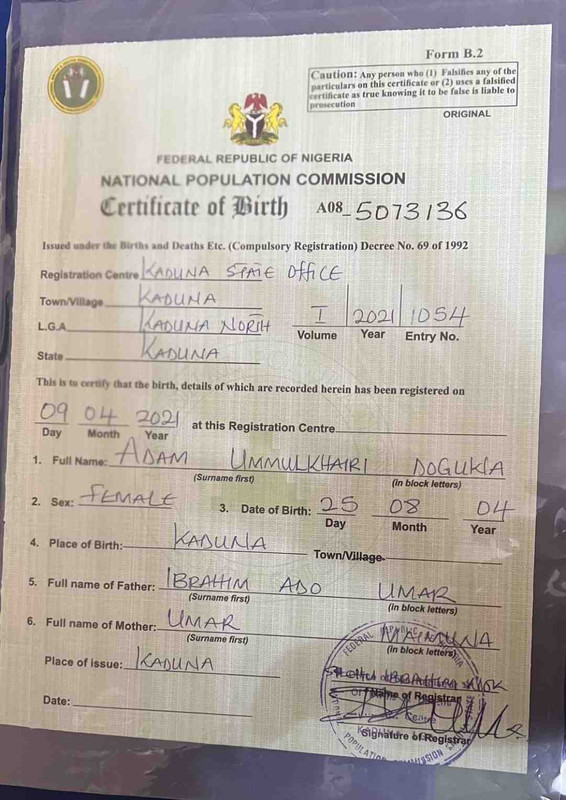 Form B.2
Caution: Any person who (1) Falsifies any of the
particulars on this certificate or (2) uses a falsified
certificate as true knowing it to be false is liable to
prosecution
ORIGINAL
FEDERAL REPUBLIC OF NIGERIA
NATIONAL POPULATION COMMISSION
Certificate of Birth A08-5073136
Issued under the Births and Deaths Etc. (Compulsory Registration) Decree No. 69 of 1992
Registration Centre KADUNA STATE OFFICE
Town/Village KADUNA
L.G.A KADUNA NORTH I 2021 1054
Volume Year Entry No.
State KADUNA
This is to certify that the birth, details of which are recorded herein has been registered on
09 04 2021 at this Registration Centre
Day Month Year
1. Full Name: ADAM UMMULKHAIRI DOGUKIA
(Surname first) (in block letters)
2. Sex: FEMALE 3. Date of Birth: 25 08 04
Day Month Year
4. Place of Birth: KADUNA Town/Village
5. Full name of Father: IBRAHIM ADO UMAR
(Surname first) (in block letters)
6. Full name of Mother: UMAR MAIMUNA
(Surname first) (in block letters)
Place of issue: KADUNA
Name of Registrar
Date:
Signature of Registrar